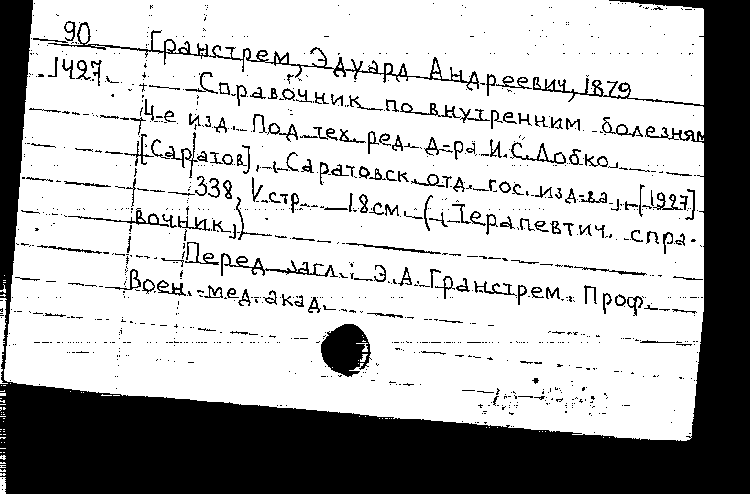 90 Гранстрем, Эдуард Андреевич, 1879
1427. Справочник по внутренним болезням
4-е изд. Под тех. ред. д-ра И.С. Лобко.
[Саратов], Саратовск. отд. гос. изд-ва, [1927]
338, V стр. 18 см. (Терапевтич. спра-
вочник,)
Перед загл.: Э.А. Гранстрем. Проф.
Воен.-мед. акад.